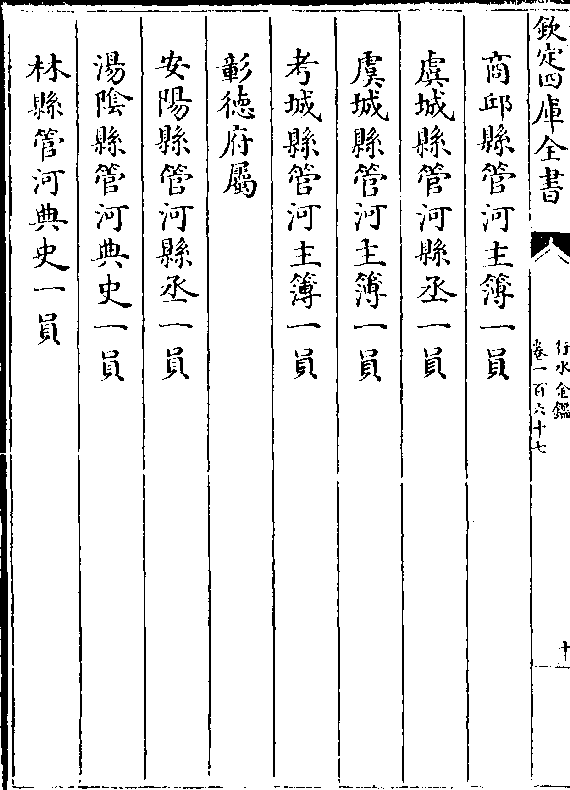 欽定四庫全書
行水金鑑
卷一百六十七
十
商邱縣管河主簿一員
虞城縣管河縣丞一員
虞城縣管河主簿一員
考城縣管河主簿一員
彰德府屬
安陽縣管河縣丞一員
湯陰縣管河典史一員
林縣管河典史一員